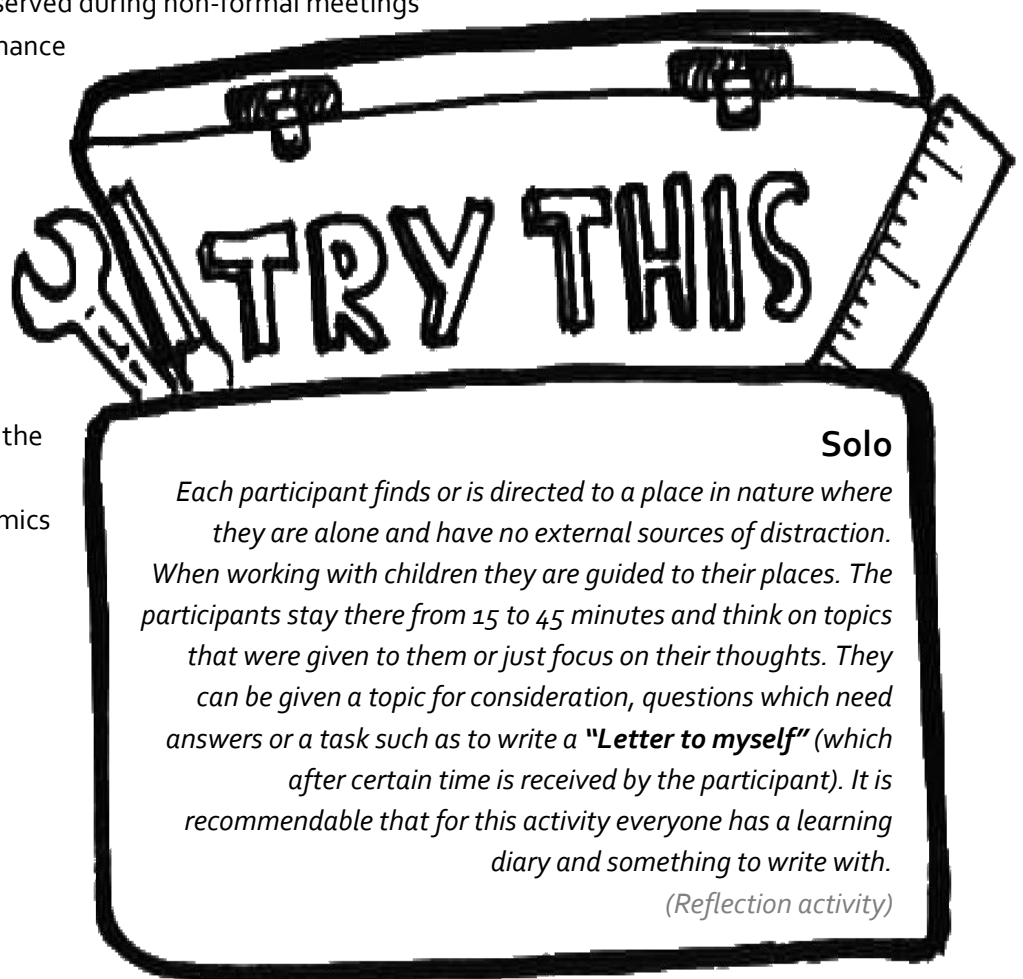 served during non-formal meetings
TRY THIS
the
Solo
Each participant finds or is directed to a place in nature where
they are alone and have no external sources of distraction.
When working with children they are guided to their places. The
participants stay there from 15 to 45 minutes and think on topics
that were given to them or just focus on their thoughts. They
can be given a topic for consideration, questions which need
answers or a task such as to write a “Letter to myself” (which
after certain time is received by the participant). It is
recommendable that for this activity everyone has a learning
diary and something to write with.
(Reflection activity)